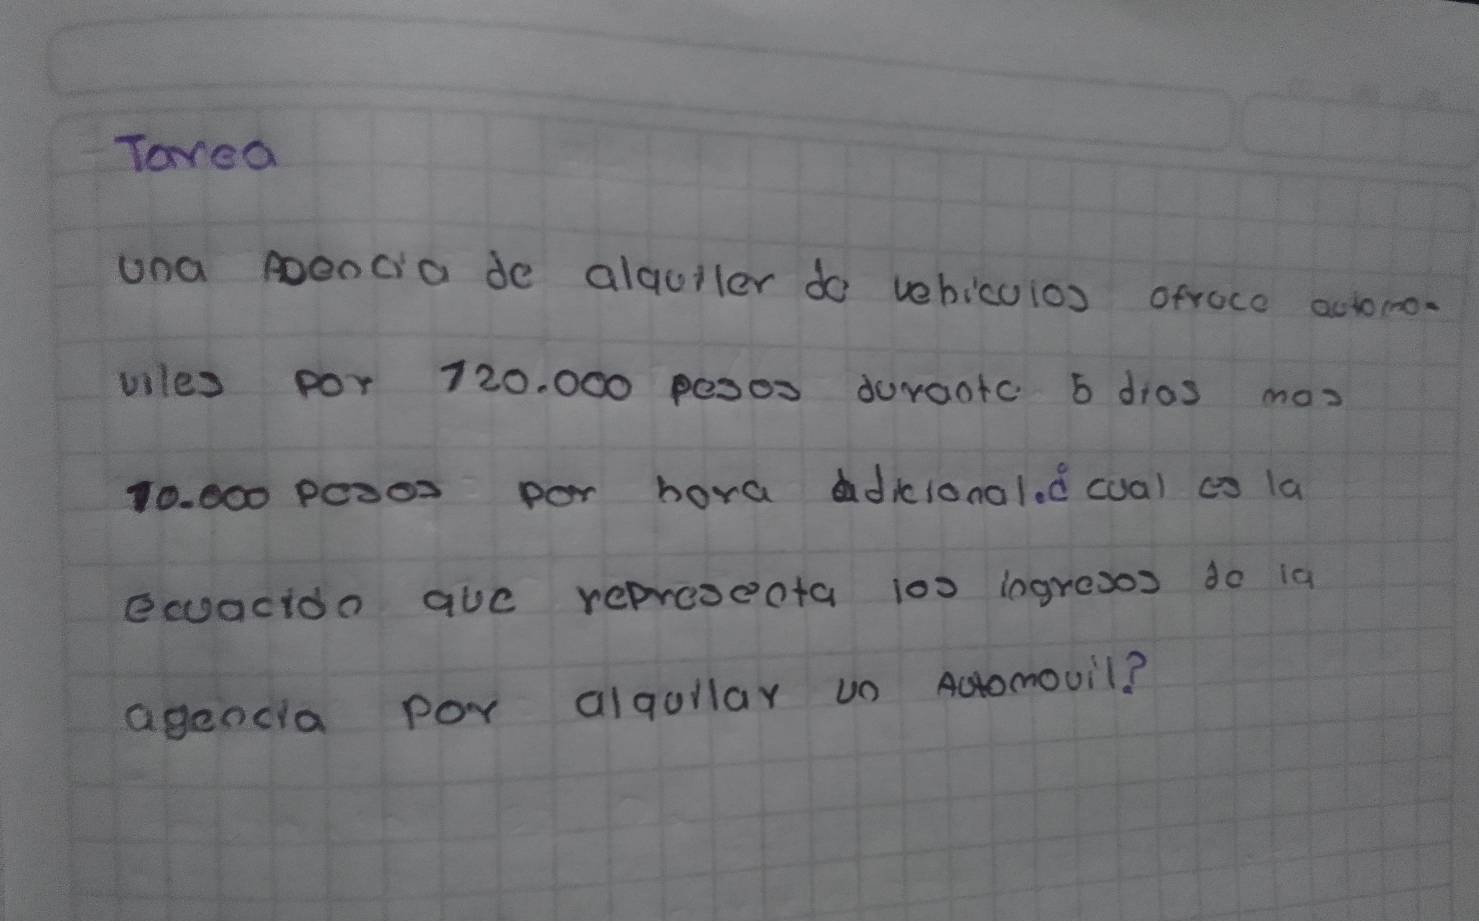 Tarea
una Agencia de alquiler de vehiculos ofrece automo-
viles por 120.000 pesos durante 5 dias mas
10.000 pesos por hora adicional.¿ cual es la
ecuación que representa los ingresos de la
agencia por alquilar un Automovil?